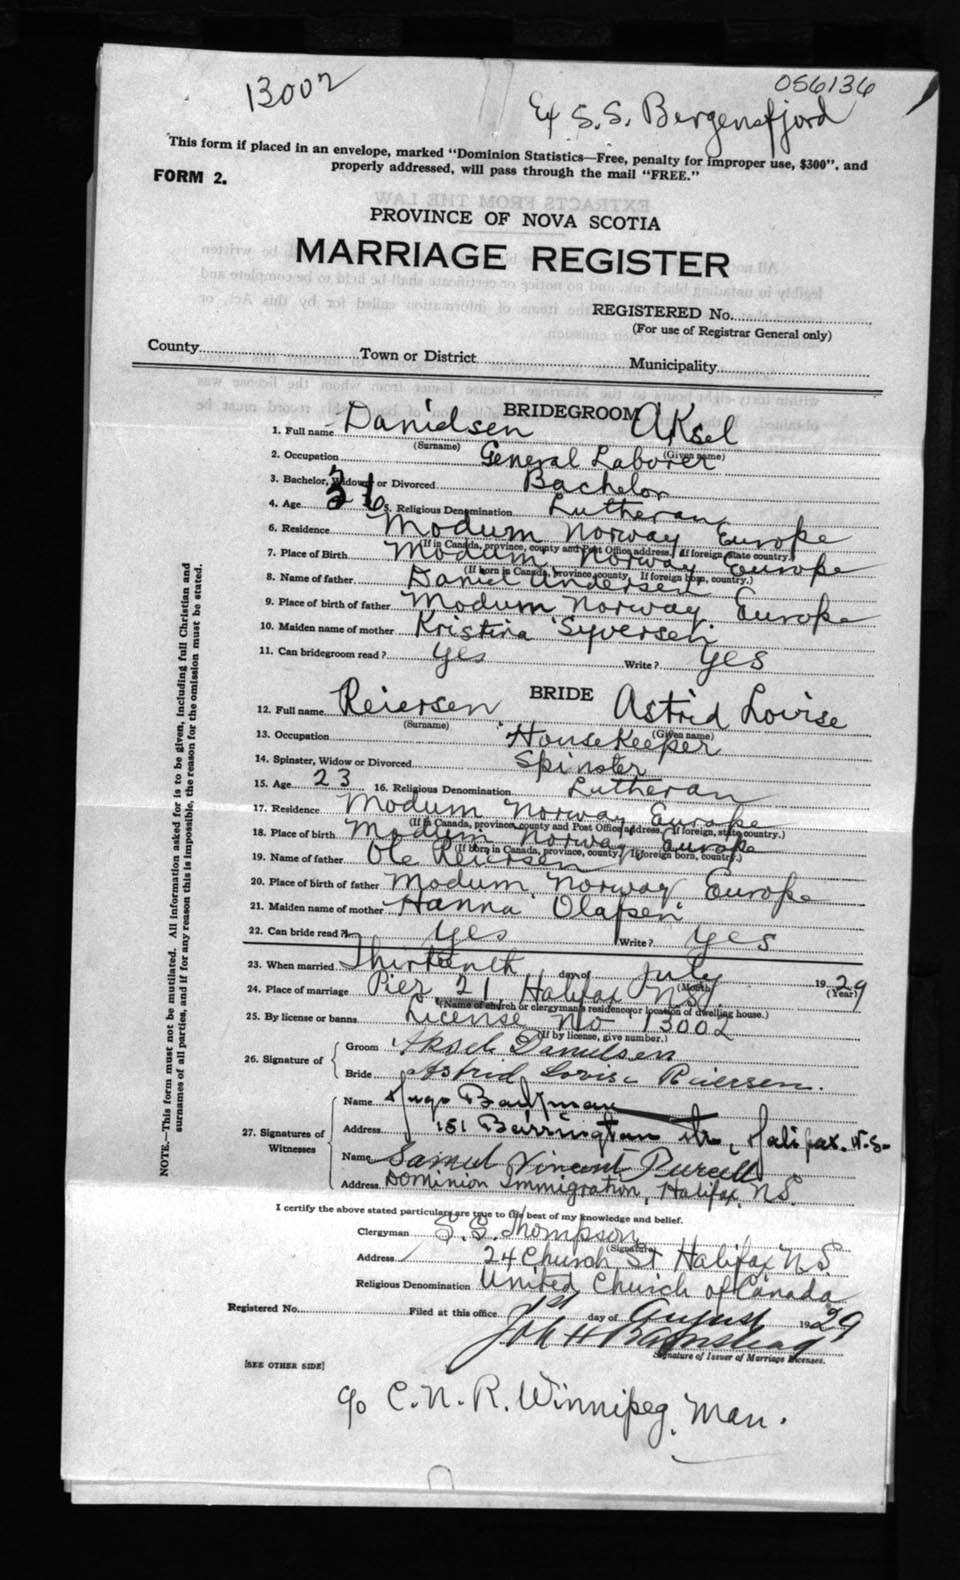 13002
056136
Ex S.S. Bergensfjord
This form if placed in an envelope, marked "Dominion Statistics—Free, penalty for improper use, $300", and
properly addressed, will pass through the mail "FREE."
FORM 2.
PROVINCE OF NOVA SCOTIA
MARRIAGE REGISTER
REGISTERED No.
(For use of Registrar General only)
County Town or District Municipality
BRIDEGROOM
1. Full name Danielsen Aksel
(Surname) (Given name)
2. Occupation General Laborer
3. Bachelor, Widower or Divorced Bachelor
4. Age 5. Religious Denomination Lutheran
6. Residence Modum Norway Europe
(If in Canada, province, county and Post Office address. If foreign, state country.)
7. Place of Birth Modum, Norway Europe
(If born in Canada, province, county. If foreign born, country.)
8. Name of father Daniel Andersen
9. Place of birth of father Modum Norway. Europe
10. Maiden name of mother Kristina Syversen
11. Can bridegroom read? yes Write? yes
BRIDE
12. Full name Reiersen Astrid Lovise
(Surname) (Given name)
13. Occupation Housekeeper
14. Spinster, Widow or Divorced Spinster
15. Age 23 16. Religious Denomination Lutheran
17. Residence Modum Norway Europe
(If in Canada, province, county and Post Office address. If foreign, state country.)
18. Place of birth Modum Norway Europe
(If born in Canada, province, county. If foreign born, country.)
19. Name of father Ole Reiersen
20. Place of birth of father Modum, Norway Europe
21. Maiden name of mother Hanna Olafsen
22. Can bride read? yes Write? yes
23. When married Thirteenth day of July 1929
(Month) (Year)
24. Place of marriage Pier 21, Halifax N.S.
(Name of church or clergyman's residence or location of dwelling house.)
25. By license or banns License No 13002
(If by license, give number.)
26. Signature of
Groom Aksel Danielsen
Bride Astrid Lovise Reiersen.
27. Signatures of Witnesses
Name Hugo
Address 151 Barrington Str, Halifax. N.S.
Name Samuel Vincent Purcell
Address Dominion Immigration, Halifax, N.S.
I certify the above stated particulars are true to the best of my knowledge and belief.
Clergyman Thompson
(Signature)
Address 24 Church St Halifax N.S.
Religious Denomination United Church of Canada
Registered No. Filed at this office 1st day of August 1929
Signature of Issuer of Marriage Licenses.
[SEE OTHER SIDE]
c/o C.N.R. Winnipeg, Man.
NOTE.—This form must not be mutilated. All information asked for is to be given, including full Christian and
surnames of all parties, and if for any reason this is impossible, the reason for the omission must be stated.